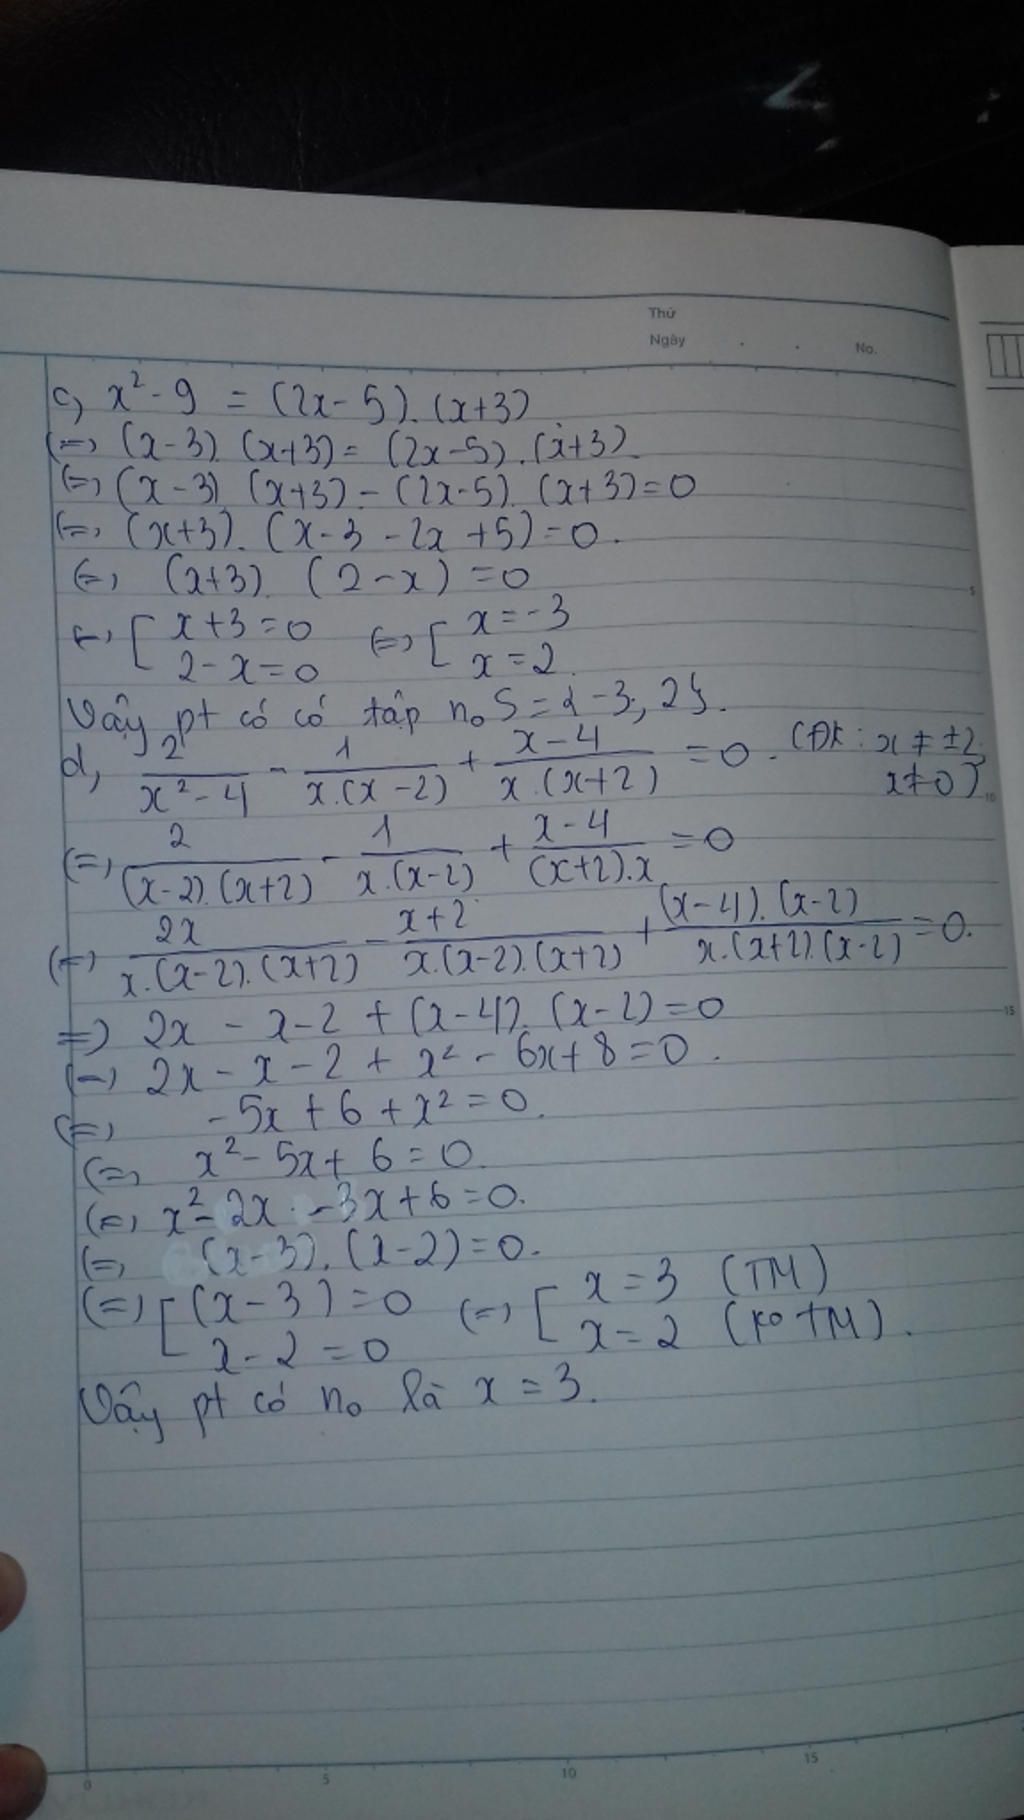 Thứ
Ngày . . No.
c, x² - 9 = (2x - 5). (x+3)
(=) (x-3) (x+3) = (2x-5). (x+3)
(=) (x-3) (x+3) - (2x-5) (x+3) = 0
(=) (x+3). (x-3 - 2x +5) = 0.
(=) (x+3) (2-x) = 0
(=) [ x+3=0 (=) [ x=-3
2-x=0 x=2
Vậy pt có có tập n₀ S={-3; 2}.
d, 2/(x²-4) - 1/(x.(x-2)) + (x-4)/(x.(x+2)) = 0. (Đk: x ≠ ±2;
x≠0)
(=) 2/((x-2).(x+2)) - 1/(x.(x-2)) + (x-4)/((x+2).x) = 0
(=) 2x/(x.(x-2).(x+2)) - (x+2)/(x.(x-2).(x+2)) + (x-4).(x-2)/(x.(x+2).(x-2)) = 0.
=) 2x - x-2 + (x-4). (x-2) = 0
(=) 2x - x - 2 + x² - 6x+8 = 0.
(=) -5x + 6 + x² = 0.
(=) x² - 5x + 6 = 0
(=) x² - 2x - 3x + 6 = 0.
(=) (x-3). (x-2) = 0.
(=) [ (x-3) = 0 (=) [ x = 3 (TM)
x-2 = 0 x = 2 (ko TM).
Vậy pt có n₀ là x = 3.
5
10
15
0 5 10 15